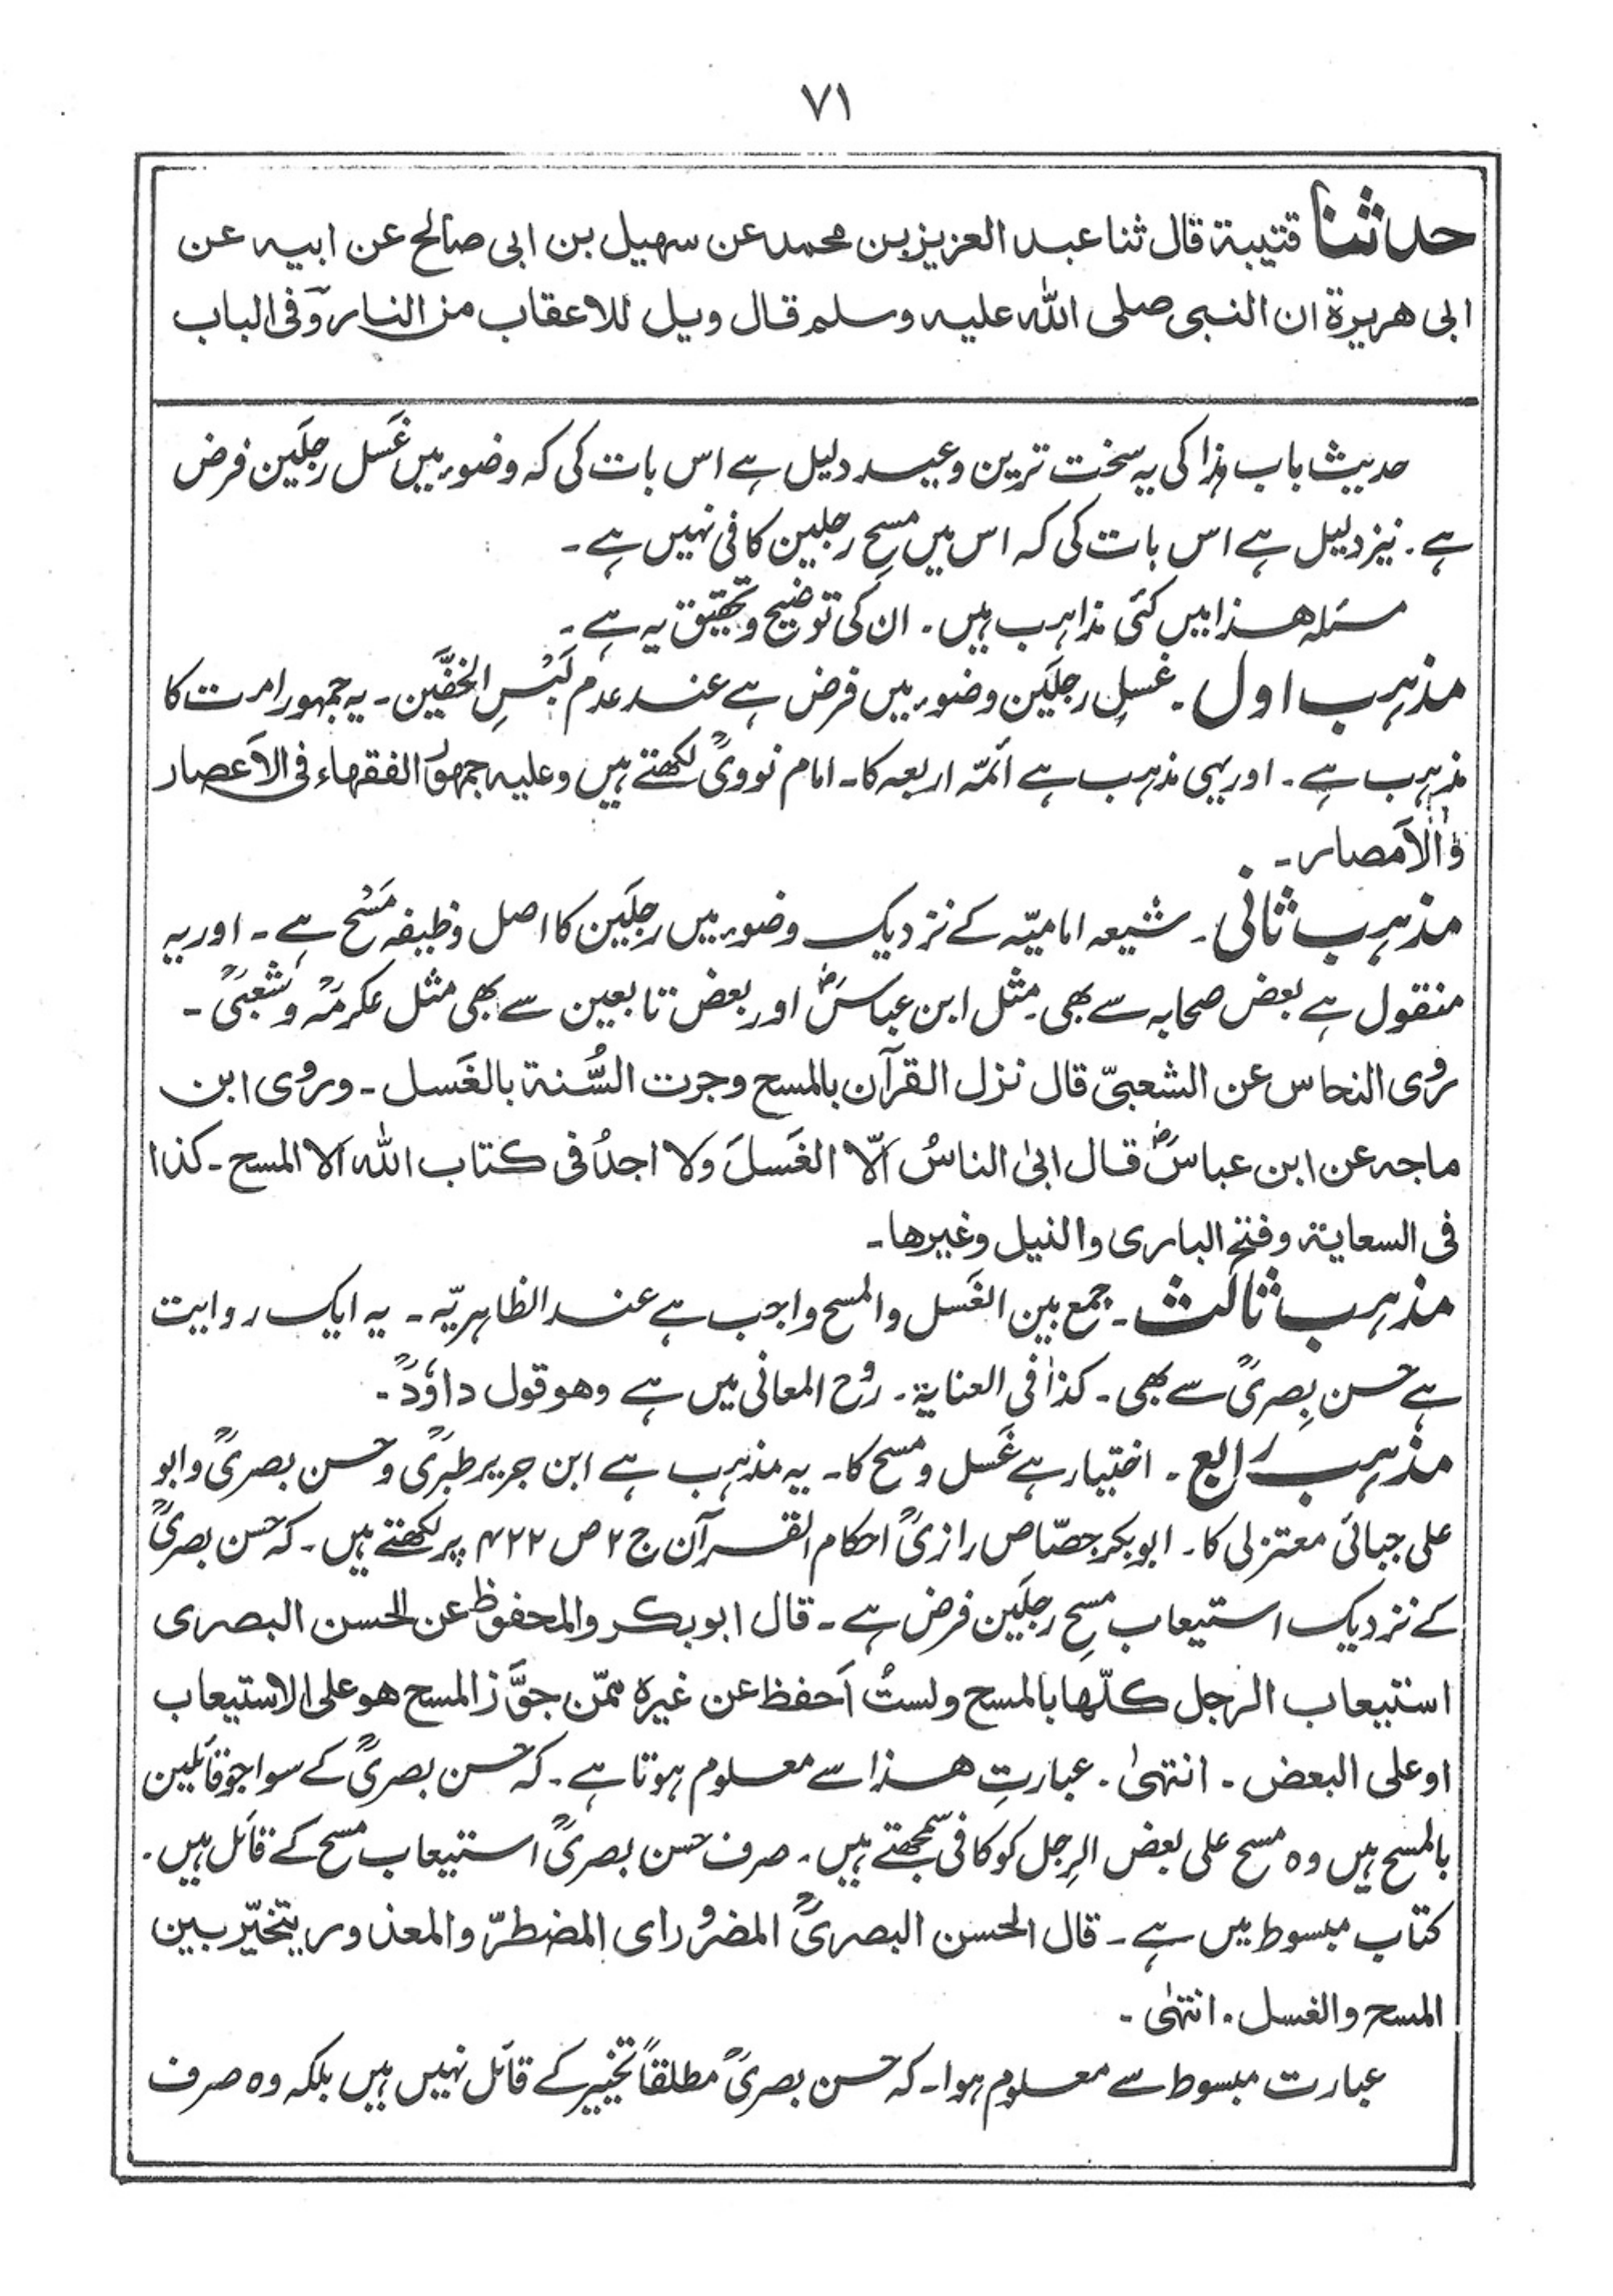 ۷۱
حدثنا قتیبة قال ثنا عبد العزیز بن محمد عن سهیل بن ابی صالح عن ابیه عن
ابی هریرة ان النبی صلی الله علیه وسلم قال ویل للاعقاب من النار وفی الباب
حدیث باب ہذا کی یہ سخت ترین وعید دلیل ہے اس بات کی کہ وضوء میں غَسل رجلَین فرض
ہے۔ نیز دلیل ہے اس بات کی کہ اس میں مسحِ رجلین کافی نہیں ہے۔
مسئلہ ھذا میں کئی مذاہب ہیں۔ ان کی توضیح و تحقیق یہ ہے۔
مذہب اول۔ غسلِ رجلَین وضوء میں فرض ہے عند عدم لُبْسِ الخفَّین۔ یہ جمہور امت کا
مذہب ہے۔ اور یہی مذہب ہے ائمّہ اربعہ کا۔ امام نوویؒ لکھتے ہیں وعلیہ جمہورُ الفقہاء فی الاَعصار
والاَمصار۔
مذہب ثانی۔ شیعہ امامیّہ کے نزدیک وضوء میں رجلَین کا اصل وظیفہ مَسْح ہے۔ اور یہ
منقول ہے بعض صحابہ سے بھی۔ مثل ابن عباسؓ اور بعض تابعین سے بھی مثل عکرمہؒ و شعبیؒ۔
روی النحاس عن الشعبیّ قال نزل القرآن بالمسح وجرت السُّنة بالغَسل۔ وروی ابن
ماجہ عن ابن عباسؓ قال ابیٰ الناسُ الّا الغَسلَ ولا اجدُ فی کتاب الله الا المسح۔ کذا
فی السعایة وفتح الباری والنیل وغیرها۔
مذہب ثالث۔ جمع بین الغَسل والمسح واجب ہے عند الظاہریّہ۔ یہ ایک روایت
ہے حسن بِصریؒ سے بھی۔ کذا فی العنایة۔ روح المعانی میں ہے وھو قول داوٗدؒ۔
مذہب رابع۔ اختیار ہے غَسل و مسح کا۔ یہ مذہب ہے ابن جریر طبریؒ و حسن بصریؒ و ابو
علی جبائی معتزلی کا۔ ابوبکر جصّاص رازیؒ احکام القرآن ج ۲ ص ۴۲۲ پر لکھتے ہیں۔ کہ حسن بصریؒ
کے نزدیک استیعاب مسحِ رجلَین فرض ہے۔ قال ابوبکر والمحفوظ عن الحسن البصری
استیعاب الرجل کلّھا بالمسح ولستُ اَحفظ عن غیرہ ممّن جوَّز المسح ھو علی الاستیعاب
او علی البعض۔ انتہیٰ۔ عبارتِ ھذا سے معلوم ہوتا ہے۔ کہ حسن بصریؒ کے سوا جو قائلین
بالمسح ہیں وہ مسح علی بعض الرِجل کو کافی سمجھتے ہیں۔ صرف حسن بصریؒ استیعاب مسح کے قائل ہیں۔
کتاب مبسوط میں ہے۔ قال الحسن البصریؒ المضرور ای المضطرّ والمعذور یتخیّر بین
المسح والغسل۔ انتہٰی۔
عبارت مبسوط سے معلوم ہوا۔ کہ حسن بصریؒ مطلقاً تخییر کے قائل نہیں ہیں بلکہ وہ صرف